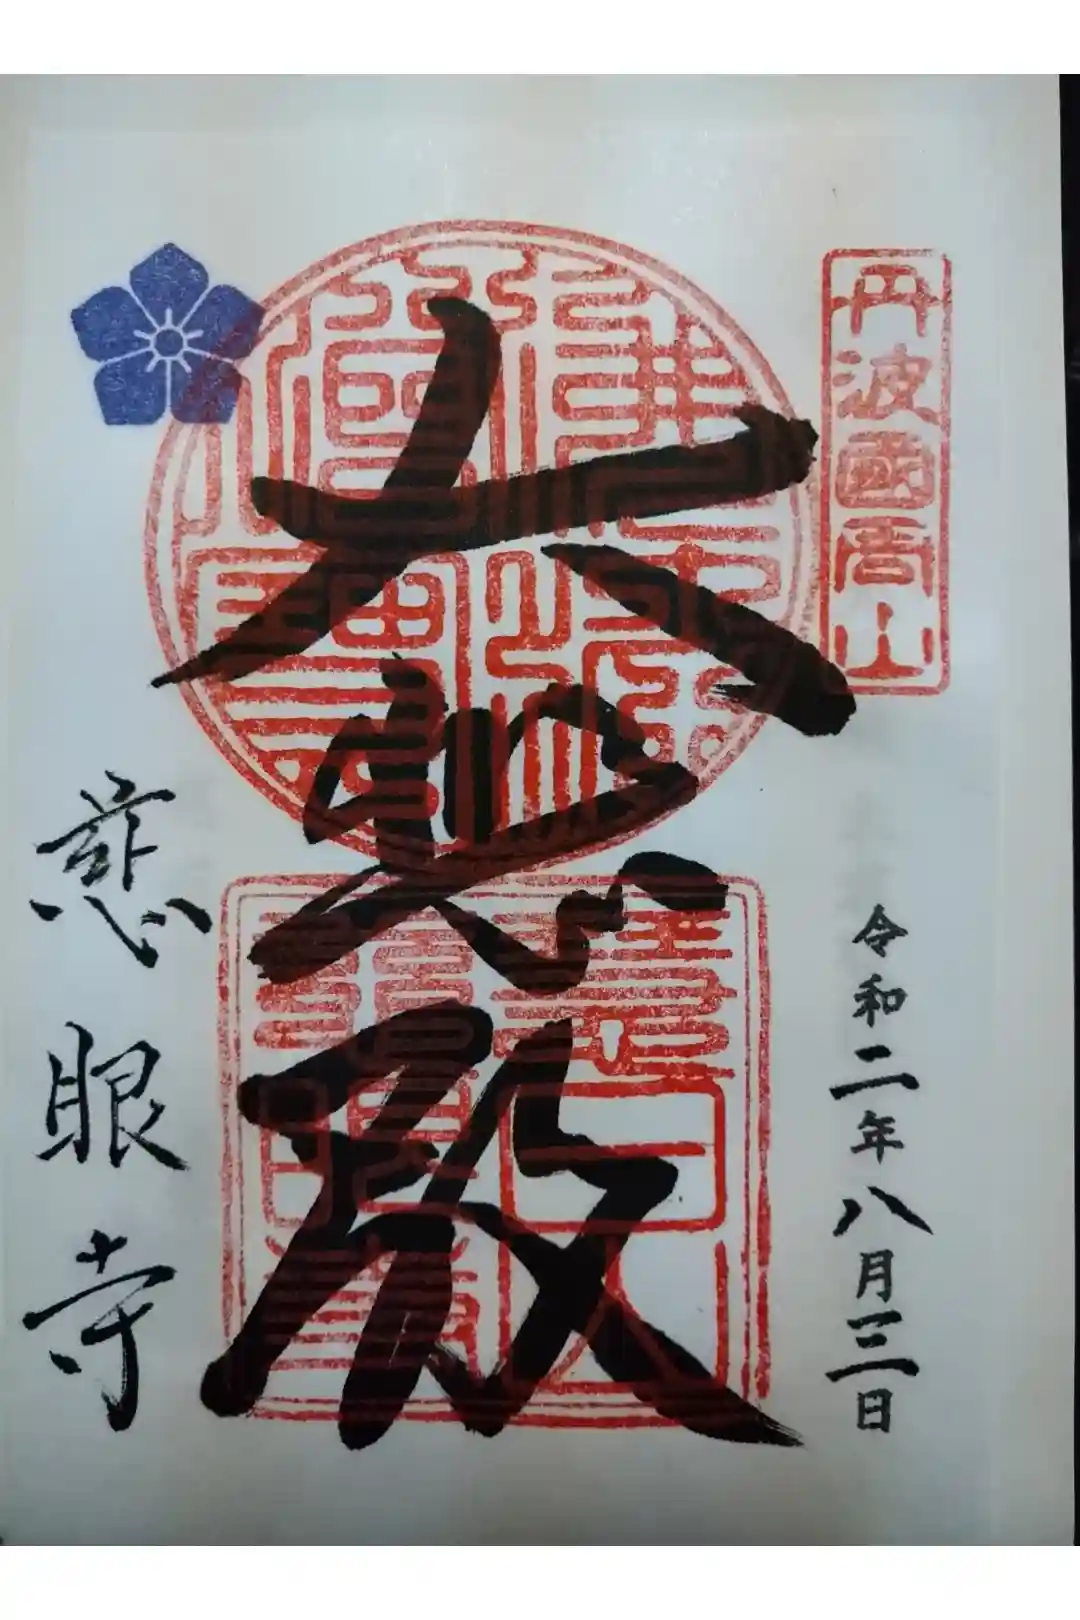 丹波國周山
令和二年八月三日
大悲殿
慈眼寺